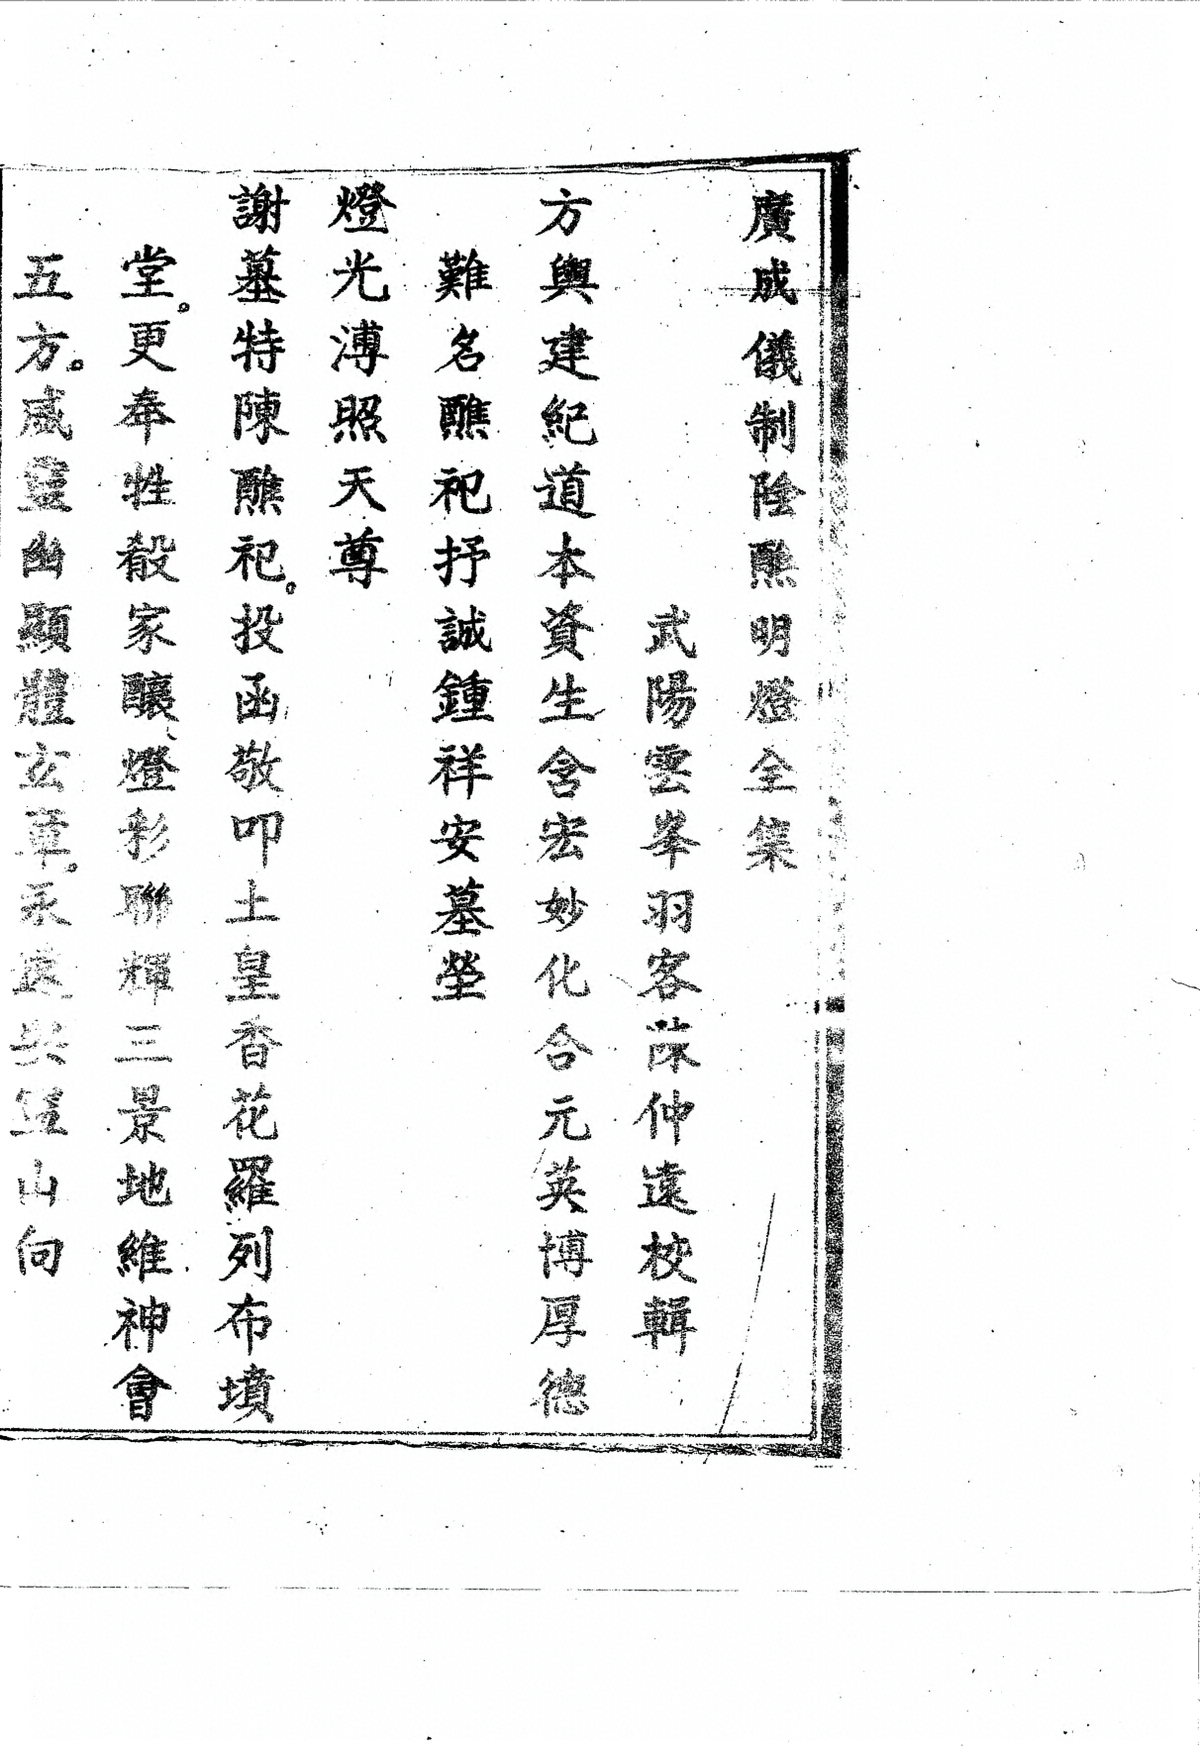 廣成儀制陰醮明燈全集
武陽雲峯羽客陳仲遠校輯
方輿建紀道本資生含宏妙化合元英博厚德
難名醮祀抒誠鍾祥安墓塋
燈光溥照天尊
謝墓特陳醮祀。投函敬叩土皇香花羅列布墳
堂。更奉牲殽家釀燈彩聯輝三景地維神會
五方。威靈幽顯體玄草。永遠山向